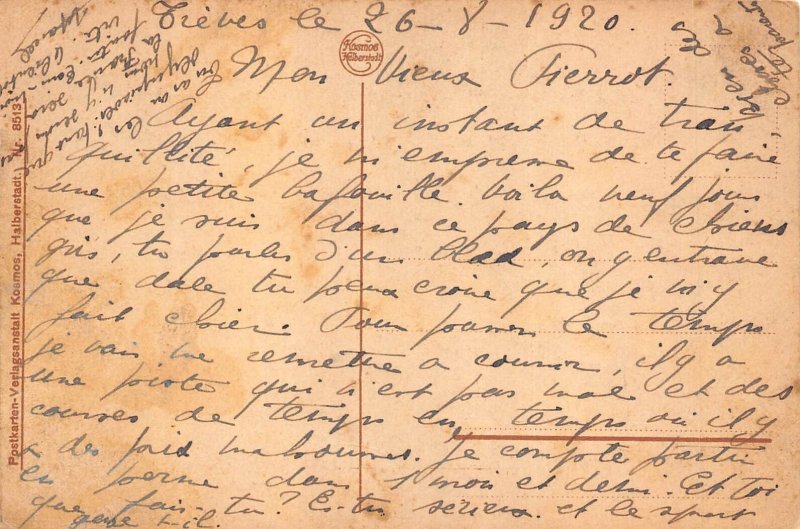 Trèves le 26-8-1920.
Mon Vieux Pierrot.
Ayant un instant de tran-
quillité, je m'empresse de te faire
une petite bafouille. Voila neuf jours
que je suis dans ce pays de chiens
gris, tu parles d'un bled, on y entrave
que dale tu peux croire que je m'y
fait chier. Pour passer le temps
je vais me remettre a courir, il y a
une piste qui n'est pas mal et des
courses de temps en temps où il y
a des prix maousses. Je compte partir
en perme dans 1 mois et demi. Et toi
que fais-tu? Es-tu sérieux. et le sport
Kosmos
Halberstadt
Postkarten-Verlagsanstalt Kosmos, Halberstadt, Nr. 8513